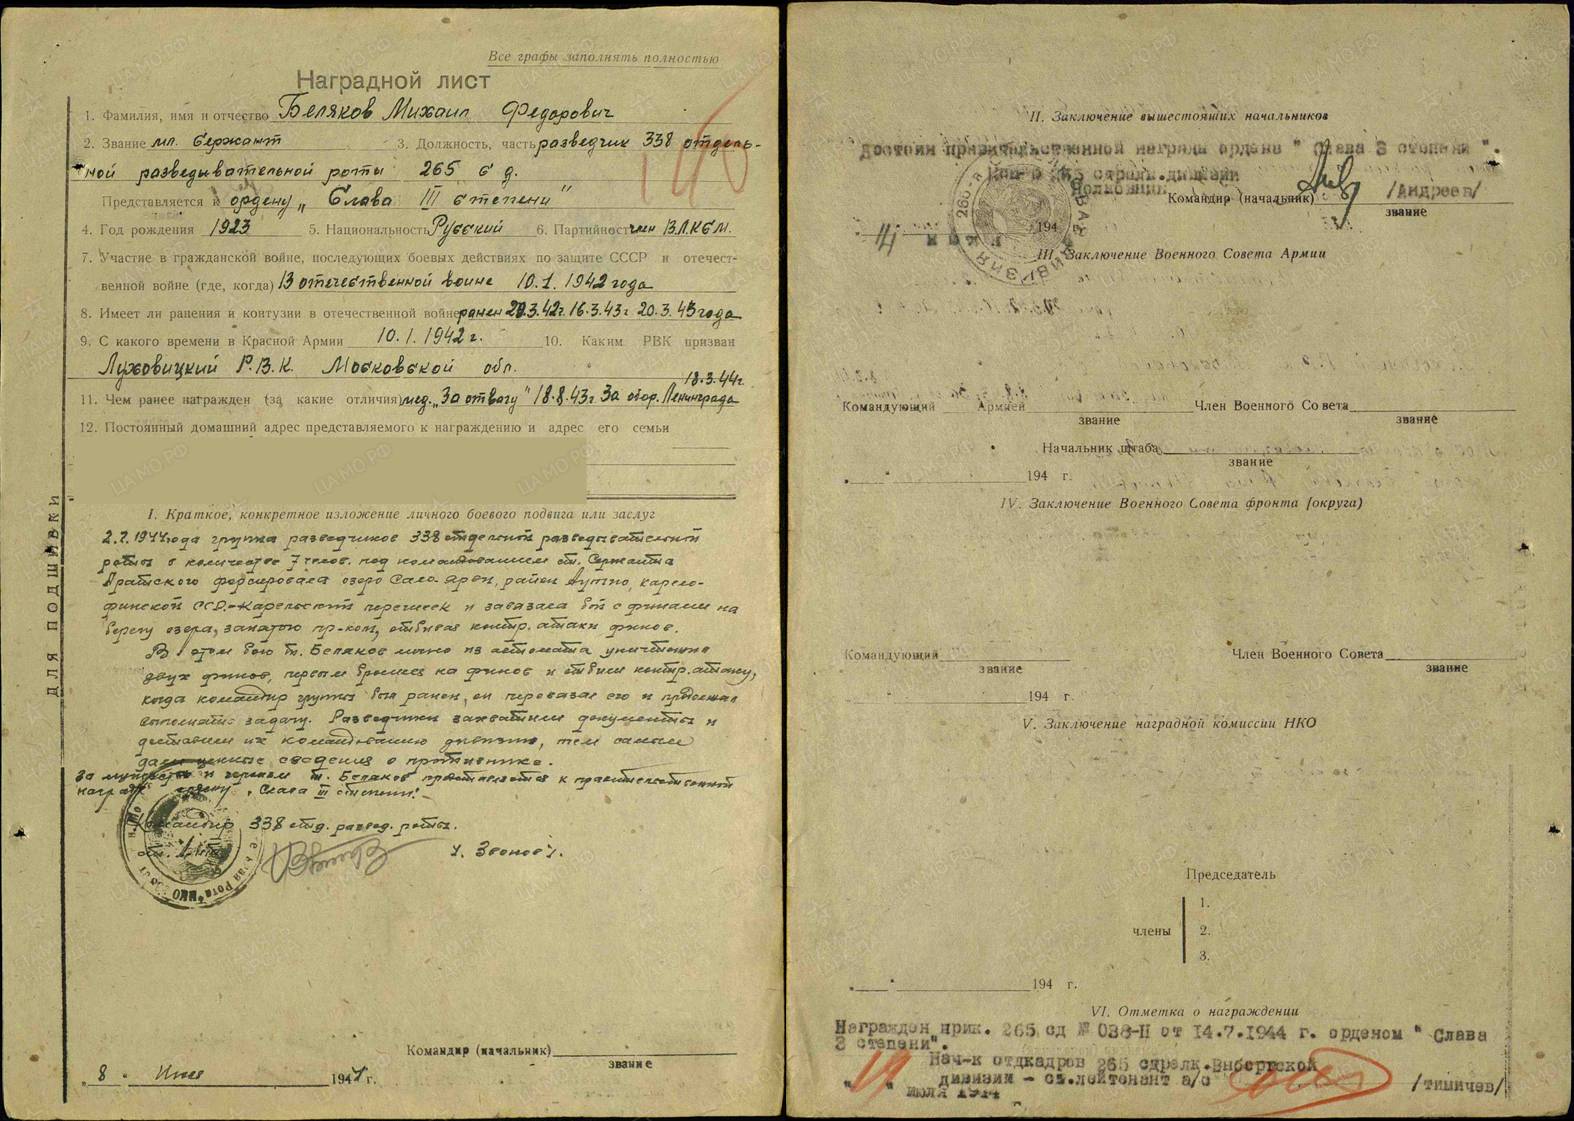 Все графы заполнять полностью
Наградной лист
1. Фамилия, имя и отчество Беляков Михаил Федорович
2. Звание мл. Сержант 3. Должность, часть разведчик 338 отдель-
ной разведывательной роты 265 с д.
Представляется к ордену „Слава III степени"
4. Год рождения 1923 5. Национальность Русский 6. Партийность член ВЛКСМ.
7. Участие в гражданской войне, последующих боевых действиях по защите СССР и отечест-
венной войне (где, когда) В отечественной воине 10.1.1942 года
8. Имеет ли ранения и контузии в отечественной войне ранен 29.3.42г. 16.3.43г 20.3.43 года
9. С какого времени в Красной Армии 10.1.1942 г. 10. Каким РВК призван
Луховицкий Р.В.К. Московской обл.
18.3.44г.
11. Чем ранее награжден (за какие отличия) мед. „За отвагу" 18.8.43г За обор. Ленинграда
12. Постоянный домашний адрес представляемого к награждению и адрес его семьи
ДЛЯ ПОДШИВКИ
I. Краткое, конкретное изложение личного боевого подвига или заслуг
2.7.1944 года группа разведчиков 338 отдельной разведывательной
роты в количестве 7 челов. под командованием ст. Сержанта
форсировала озеро район карело-
финской ССР.-Карельский перешеек и завязала бой с финами на
берегу озера, занятого пр-ком, отбивая контр. атаки финов.
В этом бою т. Беляков лично из автомата уничтожил
двух финов, первым бросился на финов и отбили контр. атаку,
когда командир группы был ранен, он перевязал его и продолжал
выполнять задачу. Разведчики захватили документы и
доставили их командованию дивизии, тем самым
дали ценные сведения о противнике.
За мужество и героизм т. Беляков представляется к правительственной
награде ордену „Слава III степени".
Командир 338 отд. развед. роты.
/. Звонов /.
Командир (начальник)
звание
„8" Июля 1944 г.
II. Заключение вышестоящих начальников
Достоин правительственной награды ордена " Слава 3 степени ".
Ком-р 265 стрелк.дивизии
Полковник Командир (начальник) /Андреев/
звание
14 июля 194
III. Заключение Военного Совета Армии
Командующий Армией Член Военного Совета
звание звание
Начальник штаба
звание
194 г.
IV. Заключение Военного Совета фронта (округа)
Командующий Член Военного Совета
звание звание
194 г.
V. Заключение наградной комиссии НКО
Председатель
1.
члены 2.
3.
194 г.
VI. Отметка о награждении
Награжден прик. 265 сд № 038-Н от 14.7.1944 г. орденом " Слава
3 степени".
Нач-к отдкадров 265 стрелк.Выборгской
дивизии - ст.лейтенант а/с /тимичев/
" 19 " июля 1944